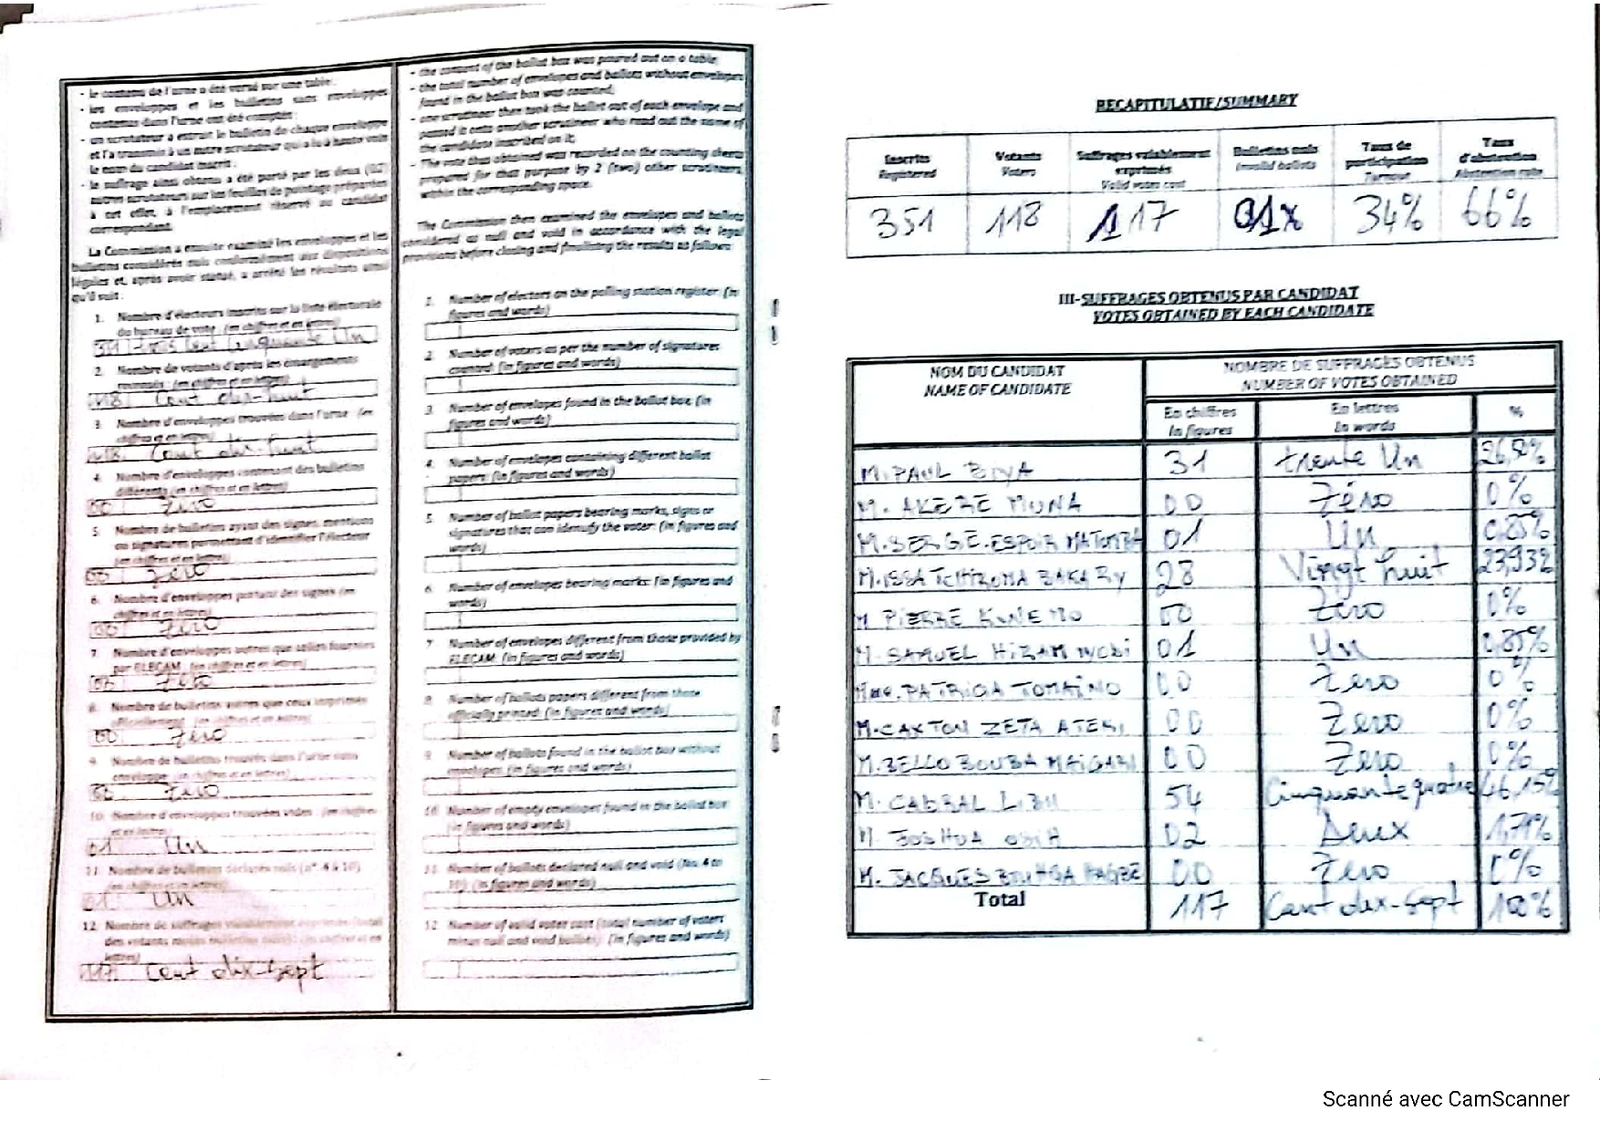 - le contenu de l'urne a été versé sur une table ;
- les enveloppes et les bulletins sans enveloppes
contenus dans l'urne ont été comptés ;
- un scrutateur a extrait le bulletin de chaque enveloppe
et l'a transmis à un autre scrutateur qui a lu à haute voix
le nom du candidat inscrit ;
- le suffrage ainsi obtenu a été porté par les deux (02)
autres scrutateurs sur les feuilles de pointage préparées
à cet effet, à l'emplacement réservé au candidat
correspondant.
La Commission a ensuite examiné les enveloppes et les
bulletins considérés nuls conformément aux dispositions
légales et, après avoir statué, a arrêté les résultats ainsi
qu'il suit :
1. Nombre d'électeurs inscrits sur la liste électorale
du bureau de vote : (en chiffres et en lettres)
351 Trois Cent Cinquante Un
2. Nombre de votants d'après les émargements
(en chiffres et en lettres)
118 Cent dix-huit
3. Nombre d'enveloppes trouvées dans l'urne : (en
chiffres et en lettres)
118 Cent dix-huit
4. Nombre d'enveloppes contenant des bulletins
différents (en chiffres et en lettres)
00 Zéro
5. Nombre de bulletins ayant des signes, mentions
ou signatures permettant d'identifier l'électeur
(en chiffres et en lettres)
00 Zéro
6. Nombre d'enveloppes portant des signes (en
chiffres et en lettres)
00 Zéro
7. Nombre d'enveloppes autres que celles fournies
par ELECAM : (en chiffres et en lettres)
00 Zéro
8. Nombre de bulletins autres que ceux imprimés
officiellement : (en chiffres et en lettres)
00 Zéro
9. Nombre de bulletins trouvés dans l'urne sans
enveloppe : (en chiffres et en lettres)
00 Zéro
10. Nombre d'enveloppes trouvées vides : (en chiffres
et en lettres)
01 Un
11. Nombre de bulletins déclarés nuls (n°. 4 à 10) :
(en chiffres et en lettres)
01 Un
12. Nombre de suffrages valablement exprimés (total
des votants moins bulletins nuls) : (en chiffres et en
lettres)
117 Cent dix-sept
- the content of the ballot box was poured out on a table;
- the total number of envelopes and ballots without envelopes
found in the ballot box was counted;
- one scrutineer then took the ballot out of each envelope and
passed it onto another scrutineer who read out the name of
the candidate inscribed on it;
- The vote thus obtained was recorded on the counting sheets
prepared for that purpose by 2 (two) other scrutineers
within the corresponding space.
The Commission then examined the envelopes and ballots
considered as null and void in accordance with the legal
provisions before closing and finalising the results as follows:
1. Number of electors on the polling station register: (in
figures and words)
2. Number of voters as per the number of signatures
counted: (in figures and words)
3. Number of envelopes found in the ballot box: (in
figures and words)
4. Number of envelopes containing different ballot
papers: (in figures and words)
5. Number of ballot papers bearing marks, signs or
signatures that can identify the voter: (in figures and
words)
6. Number of envelopes bearing marks: (in figures and
words)
7. Number of envelopes different from those provided by
ELECAM: (in figures and words)
8. Number of ballots papers different from those
officially printed: (in figures and words)
9. Number of ballots found in the ballot box without
envelopes: (in figures and words)
10. Number of empty envelopes found in the ballot box:
(in figures and words)
11. Number of ballots declared null and void (Nos. 4 to
10): (in figures and words)
12. Number of valid votes cast (total number of voters
minus null and void ballots): (in figures and words)
RECAPITULATIF/SUMMARY
Inscrits Votants Suffrages valablement exprimés Bulletins nuls Taux de participation Taux d'abstention
Registered Voters Valid votes cast Invalid ballots Turnout Abstention rate
351 118 117 01x 34% 66%
III-SUFFRAGES OBTENUS PAR CANDIDAT
VOTES OBTAINED BY EACH CANDIDATE
NOM DU CANDIDAT NOMBRE DE SUFFRAGES OBTENUS
NAME OF CANDIDATE NUMBER OF VOTES OBTAINED
En chiffres En lettres %
In figures In words
M. PAUL BIYA 31 trente Un 26,50%
M. AKERE MUNA 00 Zéro 0%
M. SERGE ESPOIR MATOMBA 01 Un 0,85%
M. ISSA TCHIROMA BAKARY 28 Vingt huit 23,93%
M. PIERRE KWEMO 00 Zéro 0%
M. SAMUEL HIRAM IYODI 01 Un 0,85%
Mme. PATRICIA TOMAINO 00 Zero 0%
M. CAXTON ZETA ATEKI 00 Zero 0%
M. BELLO BOUBA MAIGARI 00 Zero 0%
M. CABRAL LIBII 54 Cinquante quatre 46,15%
M. JOSHUA OSIH 02 Deux 1,71%
M. JACQUES BOUHGA HAGBE 00 Zero 0%
Total 117 Cent dix-sept 100%
Scanné avec CamScanner